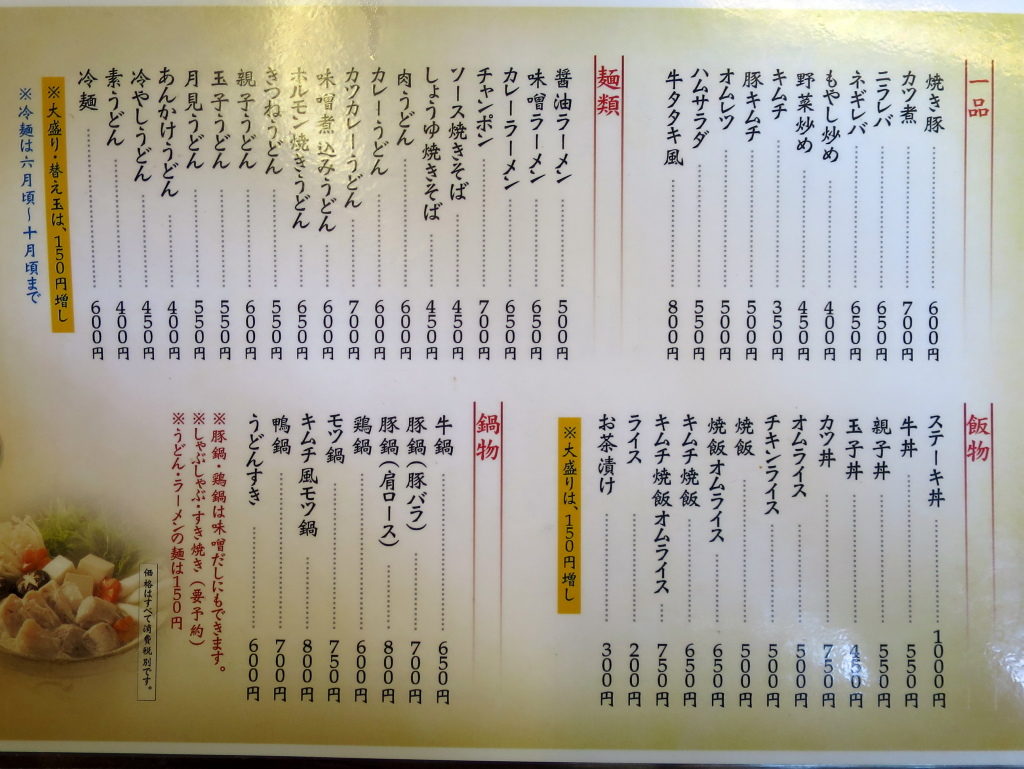 一品
焼き豚 600円
カツ煮 700円
ニラレバ 650円
ネギレバ 650円
もやし炒め 400円
野菜炒め 450円
キムチ 350円
豚キムチ 500円
オムレツ 500円
ハムサラダ 550円
牛タタキ風 800円
麺類
醤油ラーメン 500円
味噌ラーメン 650円
カレーラーメン 650円
チャンポン 700円
ソース焼きそば 450円
しょうゆ焼きそば 450円
肉うどん 600円
カレーうどん 600円
カツカレーうどん 700円
味噌煮込みうどん 600円
ホルモン焼きうどん 650円
きつねうどん 550円
親子うどん 600円
玉子うどん 550円
月見うどん 550円
あんかけうどん 400円
冷やしうどん 450円
素うどん 400円
冷麺 600円
※大盛り・替え玉は、150円増し
※冷麺は六月頃〜十月頃まで
飯物
ステーキ丼 1000円
牛丼 550円
親子丼 550円
玉子丼 450円
カツ丼 750円
オムライス 500円
チキンライス 500円
焼飯 500円
焼飯オムライス 650円
キムチ焼飯 650円
キムチ焼飯オムライス 750円
ライス 200円
お茶漬け 300円
※大盛りは、150円増し
鍋物
牛鍋 650円
豚鍋(豚バラ) 700円
豚鍋(肩ロース) 800円
鶏鍋 600円
モツ鍋 750円
キムチ風モツ鍋 800円
鴨鍋 700円
うどんすき 600円
※豚鍋・鶏鍋は味噌だしにもできます。
※しゃぶしゃぶ・すき焼き(要予約)
※うどん・ラーメンの麺は150円
価格はすべて消費税別です。